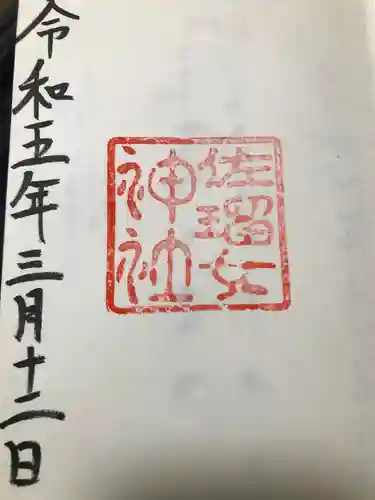 佐瑠女
神社
令和五年三月十二日